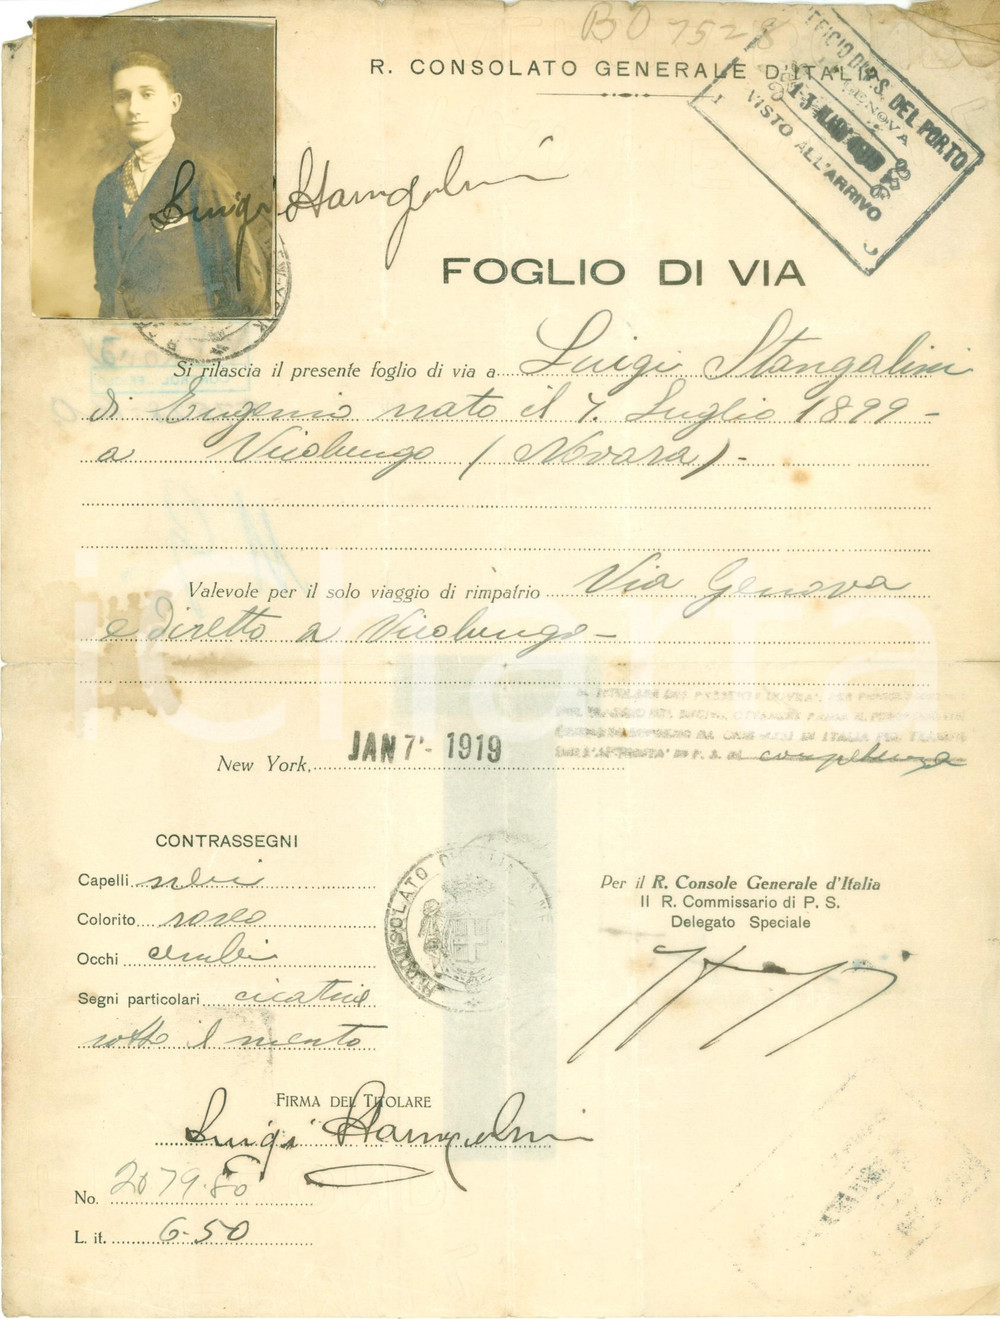 BO 7528
R. CONSOLATO GENERALE D'ITALIA
UFFICIO DI P.S. DEL PORTO
GENOVA
VISTO ALL'ARRIVO
Luigi Stangalini
FOGLIO DI VIA
Si rilascia il presente foglio di via a Luigi Stangalini
di Eugenio nato il 7. Luglio 1899 -
a Vicolungo (Novara) -
Valevole per il solo viaggio di rimpatrio Via Genova
e diretto a Vicolungo -
iCharta
IL TITOLARE DEL PRESENTE
DI P. S. di competenza
New York, JAN 7 - 1919
CONTRASSEGNI
Capelli neri
Colorito roseo
Occhi
Segni particolari cicatrice
sotto il mento
R. CONSOLATO D'ITALIA
Per il R. Console Generale d'Italia
Il R. Commissario di P. S.
Delegato Speciale
FIRMA DEL TITOLARE
Luigi Stangalini
No. 2079.80
L. it. 6.50